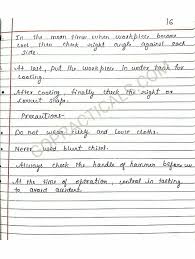 16
In the mean time when workpiece become
cool then check right angle against each
side.
At last, put the workpiece in water tank for
cooling.
After cooling finally check the right or
correct shape.
Precautions-
Do not wear and loose cloths.
Never used blunt chisel.
Always check the handle of hammer before use
At the time of operation, in talking
to avoid accident.
GOPRACTICALS.COM